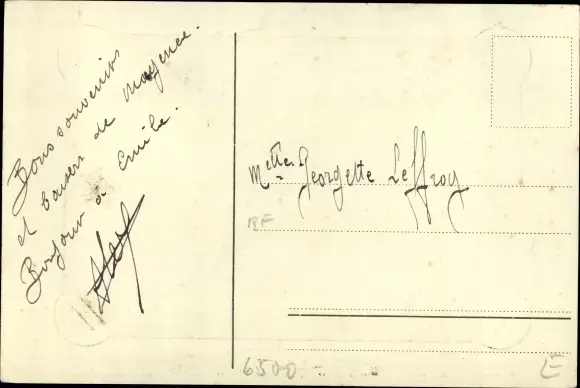 Bons souvenirs
et baisers de Mayence.
Bonjour à Emile.
Melle Georgette Leffroy
BF
6500
E